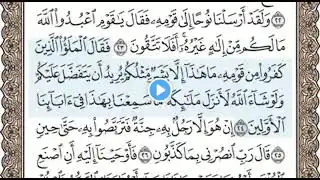 ٢٢ وَلَقَدْ أَرْسَلْنَا نُوحًا إِلَىٰ قَوْمِهِۦ فَقَالَ يَٰقَوْمِ ٱعْبُدُوا۟ ٱللَّهَ
مَا لَكُم مِّنْ إِلَٰهٍ غَيْرُهُۥٓ أَفَلَا تَتَّقُونَ ٢٣ فَقَالَ ٱلْمَلَؤُا۟ ٱلَّذِينَ
كَفَرُوا۟ مِن قَوْمِهِۦ مَا هَٰذَآ إِلَّا بَشَرٌ مِّثْلُكُمْ يُرِيدُ أَن يَتَفَضَّلَ عَلَيْكُمْ
وَلَوْ شَآءَ ٱللَّهُ لَأَنزَلَ مَلَٰٓئِكَةً مَّا سَمِعْنَا بِهَٰذَا فِىٓ ءَابَآئِنَا
ٱلْأَوَّلِينَ ٢٤ إِنْ هُوَ إِلَّا رَجُلٌۢ بِهِۦ جِنَّةٌ فَتَرَبَّصُوا۟ بِهِۦ حَتَّىٰ حِينٍ
٢٥ قَالَ رَبِّ ٱنصُرْنِى بِمَا كَذَّبُونِ ٢٦ فَأَوْحَيْنَآ إِلَيْهِ أَنِ ٱصْنَعِ